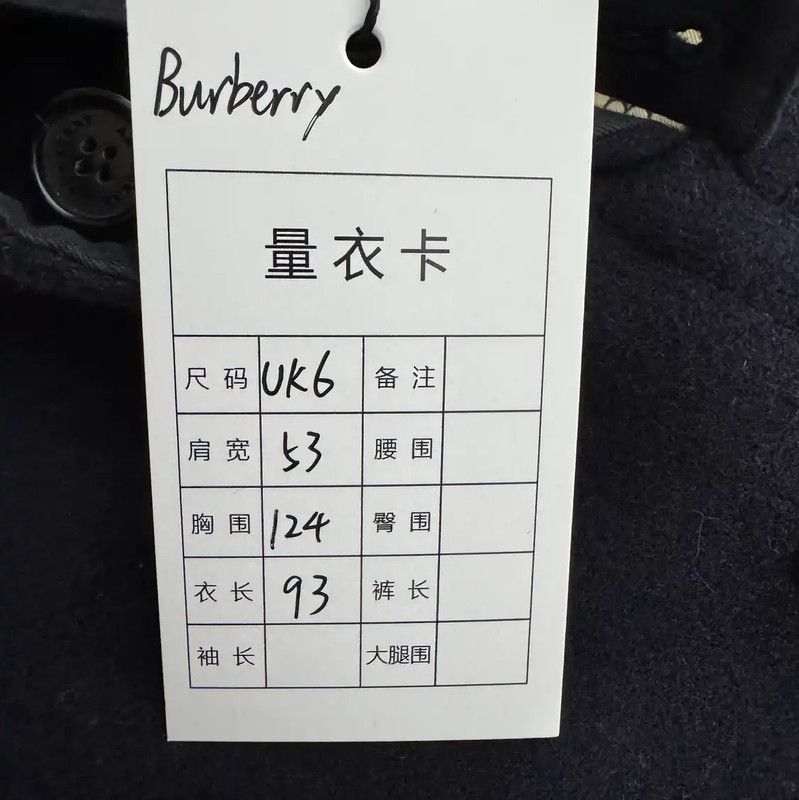 Burberry
量衣卡
尺码 UK6 备注
肩宽 53 腰围
胸围 124 臀围
衣长 93 裤长
袖长 大腿围